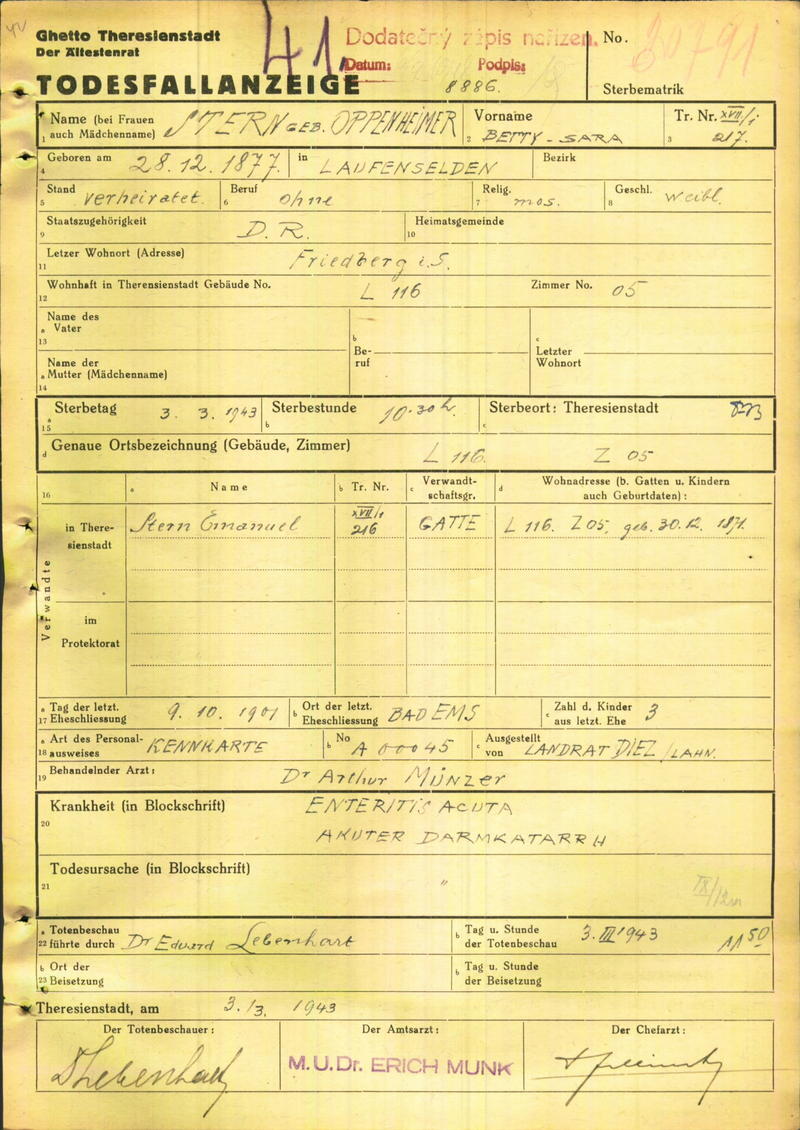 Ghetto Theresienstadt
Der Ältestenrat
TODESFALLANZEIGE
41
Dodatečný zápis nařízen.
Datum: Podpis:
8886.
No.
Sterbematrik
1 Name (bei Frauen auch Mädchenname) STERN GEB. OPPENHEIMER
2 Vorname BETTY - SARA
3 Tr. Nr. XVII/1. 217.
4 Geboren am 28. 12. 1877. in LAUFENSELDEN Bezirk
5 Stand verheiratet. 6 Beruf ohne 7 Relig. mos. 8 Geschl. weibl.
9 Staatszugehörigkeit D. R. 10 Heimatsgemeinde
11 Letzer Wohnort (Adresse) Friedberg i. S.
12 Wohnhaft in Therensienstadt Gebäude No. L 116 Zimmer No. 05
13 a Name des Vater b Beruf c Letzter Wohnort
14 a Name der Mutter (Mädchenname)
15 a Sterbetag 3. 3. 1943 b Sterbestunde 10.30 h. c Sterbeort: Theresienstadt
d Genaue Ortsbezeichnung (Gebäude, Zimmer) L 116. Z 05
16 a Name b Tr. Nr. c Verwandtschaftsgr. d Wohnadresse (b. Gatten u. Kindern auch Geburtdaten) :
Verwandte
in Theresienstadt Stern Emanuel XVII/1 216 GATTE L 116. Z 05, geb. 30. 12. 1871.
im Protektorat
17 a Tag der letzt. Eheschliessung 9. 10. 1901 b Ort der letzt. Eheschliessung BAD EMS c Zahl d. Kinder aus letzt. Ehe 3
18 a Art des Personalausweises KENNKARTE b No A 00045 c Ausgestellt von LANDRAT DIEZ / LAHN.
19 Behandelnder Arzt: Dr Arthur MÜNZER
20 Krankheit (in Blockschrift) ENTERITIS ACUTA
AKUTER DARMKATARRH
21 Todesursache (in Blockschrift) "
22 a Totenbeschau führte durch Dr Eduard Lebenhart b Tag u. Stunde der Totenbeschau 3. III 1943 11 50
23 b Ort der Beisetzung b Tag u. Stunde der Beisetzung
Theresienstadt, am 3. /3. 1943
Der Totenbeschauer: Der Amtsarzt: Der Chefarzt:
M.U.Dr. ERICH MUNK